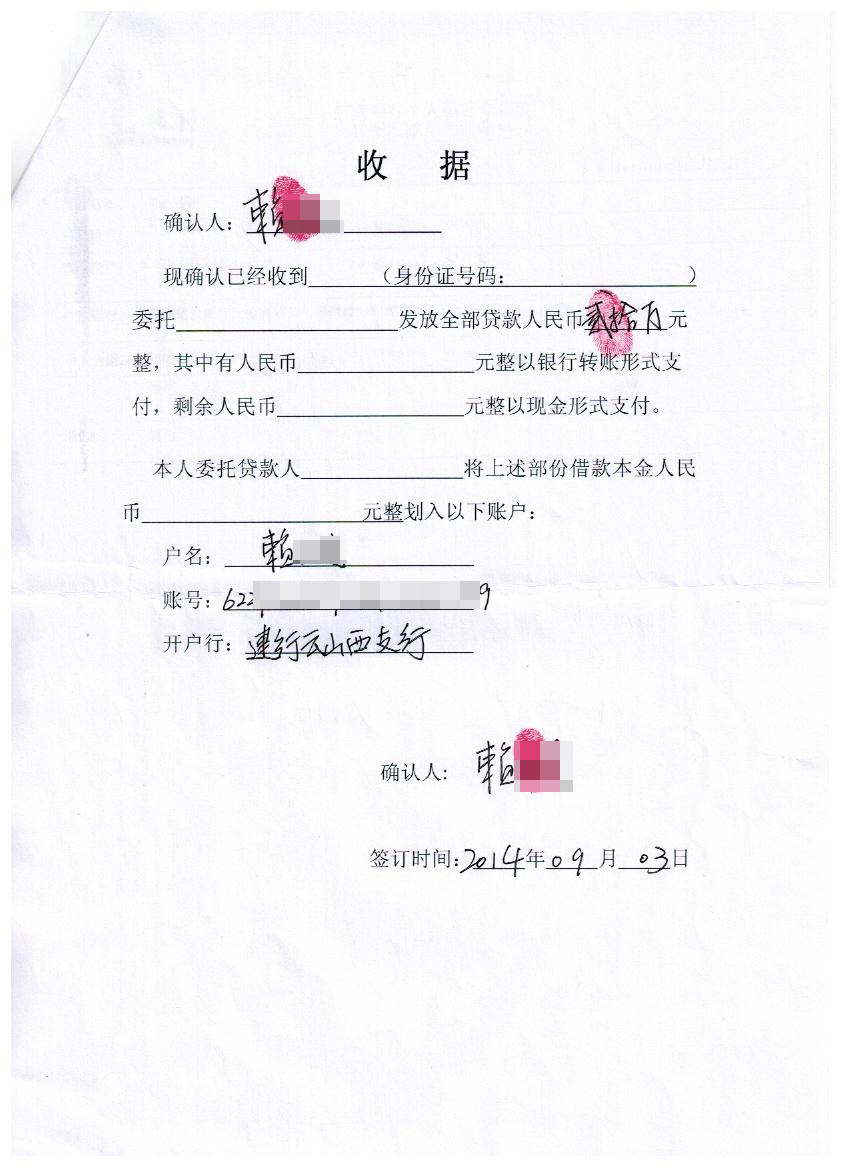 收 据
确认人：賴
现确认已经收到______（身份证号码：                ）
委托____________________发放全部贷款人民币贰拾万元
整，其中有人民币________________元整以银行转账形式支
付，剩余人民币________________元整以现金形式支付。
本人委托贷款人______________将上述部份借款本金人民
币____________________元整划入以下账户：
户名：賴
账号：622 9
开户行：建行云山西支行
确认人：賴
签订时间：2014年09月03日